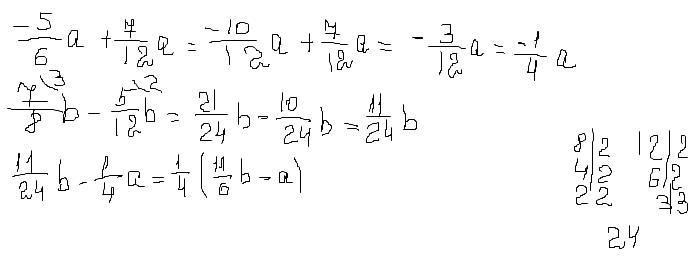 -5/6 a + 7/12 a = -10/12 a + 7/12 a = -3/12 a = -1/4 a
7/8 \3 b - 5/12 \2 b = 21/24 b - 10/24 b = 11/24 b
11/24 b - 1/4 a = 1/4 (11/6 b - a)
8|2 12|2
4|2 6|2
2 2 3|3
24